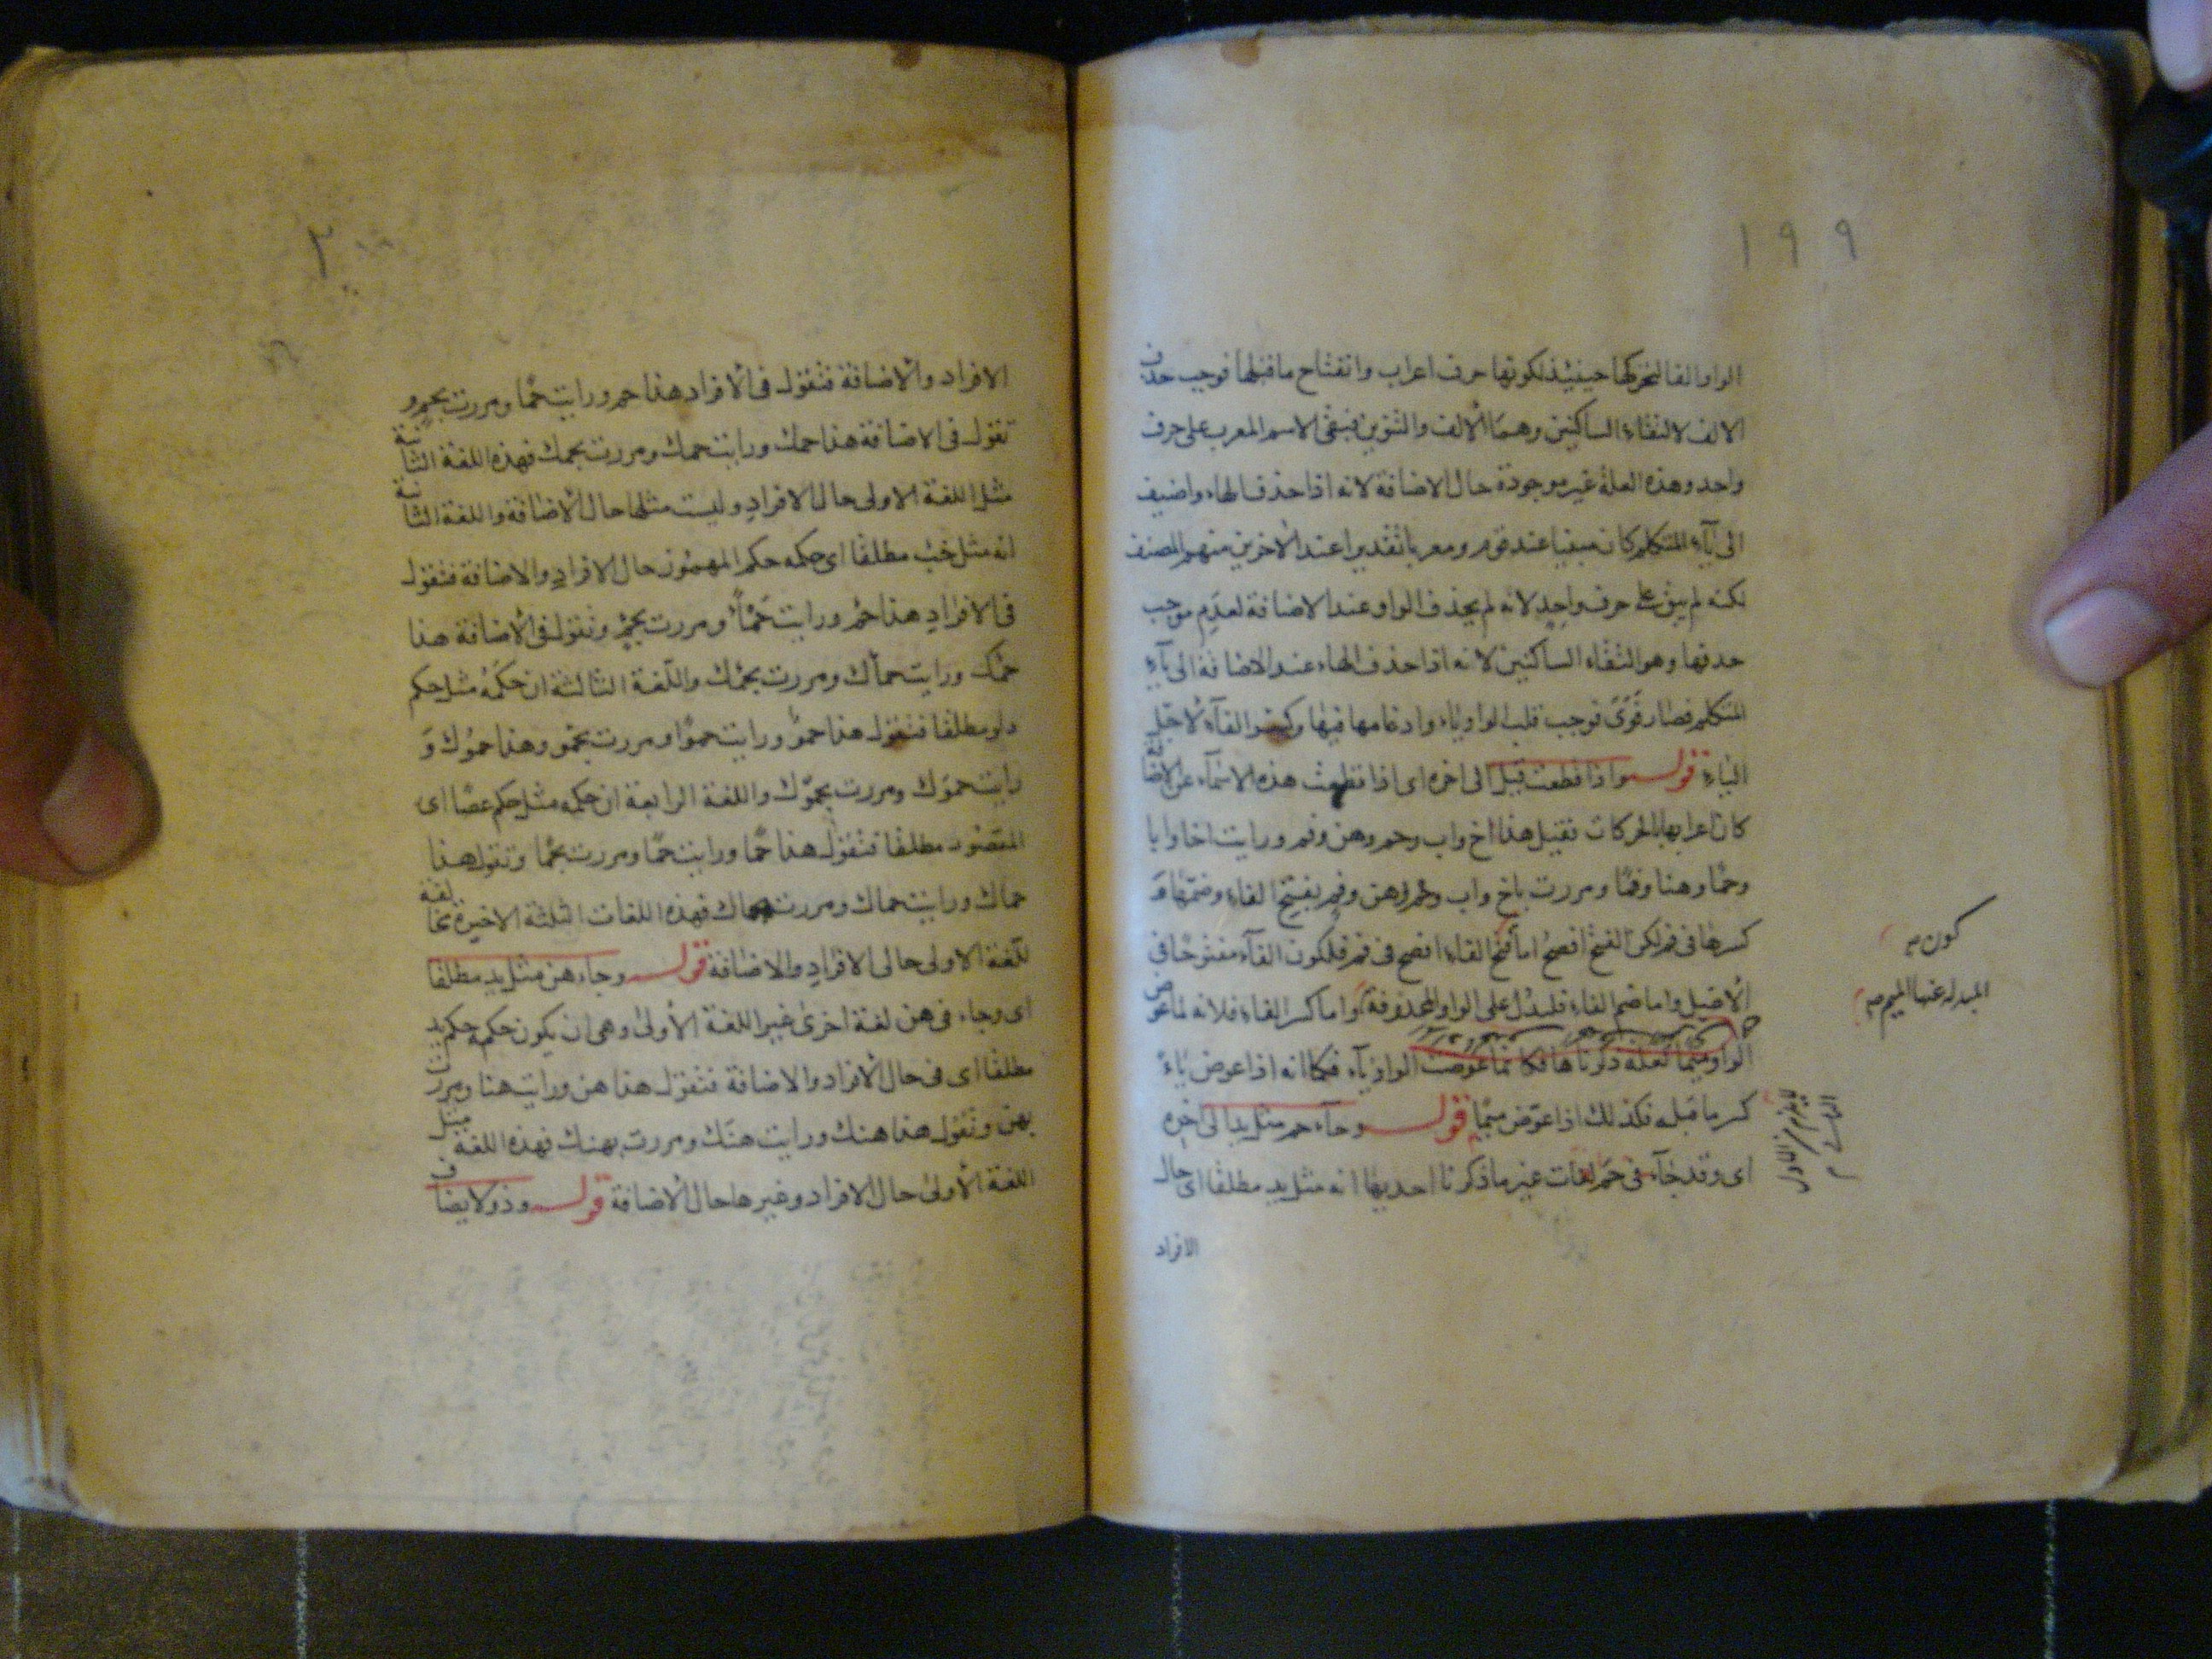 ١٩٩
الواو الفا لتحركها حينئذ لكونها حرف اعراب وانفتاح ما قبلها فوجب حذف
الالف لالتقاء الساكنين وهما الألف والتنوين فيبقى الاسم المعرب على حرف
واحد وهذه العلة غير موجودة حال الاضافة لانه اذا حذف الهاء واضيف
الى يآء المتكلم كان مبنيا عند قوم ومعربا تقديرا عند الآخرين منهم المصنف
لكنه لم يبق على حرف واحد لانه لم يحذف الواو عند الاضافة لعدم موجب
حذفها وهو التقاء الساكنين لانه اذا حذف الهاء عند الاضافة الى يآء
المتكلم فصار فوى فوجب قلب الواو ياء وادغامها فيها الفآء لاجل
الياء قوله واذا قطعت قيل الى اخره اى اذا قطعت هذه الاسمآء عن الاضافة
كان اعرابها بالحركات فقيل هذا اخ واب وحم وهن وفم ورايت اخا وابا
وحما وهنا وفما ومررت باخ واب وحم وهن وفم بفتح الفاء وضمها و
كسرها فى فم لكن الفتح افصح اما فتح الفاء افصح فى فم فلكون الفآء مفتوحا فى
الأصل واما ضم الفاء فليدل على الواو المحذوفة واما كسر الفاء فلانه لما عوض
الواو ميما لعلة ذكرناها فكانما عوضت الواو يآء فكما انه اذا عوض ياء
كسر ما قبله فكذلك اذا عوض ميما قوله وجآء حم مثل يد الى اخره
اى وقد جآء فى حم لغات غير ما ذكرنا احديها انه مثل يد مطلقا اى حال
الافراد
كون صح
المبدلة عنها الميم صح
٢٠٠
الافراد والاضافة فتقول فى الأفراد هذا حم ورايت حما ومررت بحم و
تقول فى الاضافة هذا حمك ورايت حمك ومررت بحمك فهذه اللغة الثانية
مثل اللغة الاولى حال الافراد وليست مثلها حال الأضافة واللغة الثانية
انه مثل خبء مطلقا اى حكمه حكم المهموز حال الافراد والاضافة فتقول
فى الافراد هذا حمء ورايت حمأ ومررت بحمء وتقول فى الأضافة هذا
حمك ورايت حمأك ومررت بحمئك واللغة الثالثة ان حكمه مثل حكم
دلو مطلقا فتقول هذا حمو ورايت حموا ومررت بحمو وهذا حموك و
رايت حموك ومررت بحموك واللغة الرابعة ان حكمه مثل حكم عصا اى
المقصور مطلقا فتقول هذا حما ورايت حما ومررت بحما وتقول هذا
حماك ورايت حماك ومررت بحماك فهذه اللغات الثلثة الاخيرة مخالفة
للغة الاولى حالى الافراد والاضافة قوله وجاء هن مثل يد مطلقا
اى وجاء فى هن لغة اخرى غير اللغة الأولى وهى ان يكون حكمه حكم يد
مطلقا اى فى حال الأفراد والاضافة فتقول هذا هن ورايت هنا ومررت
بهن وتقول هذا هنك ورايت هنك ومررت بهنك فهذه اللغة مثل
اللغة الأولى حال الافراد وغيرها حال الأضافة قوله وذو لا يضاف